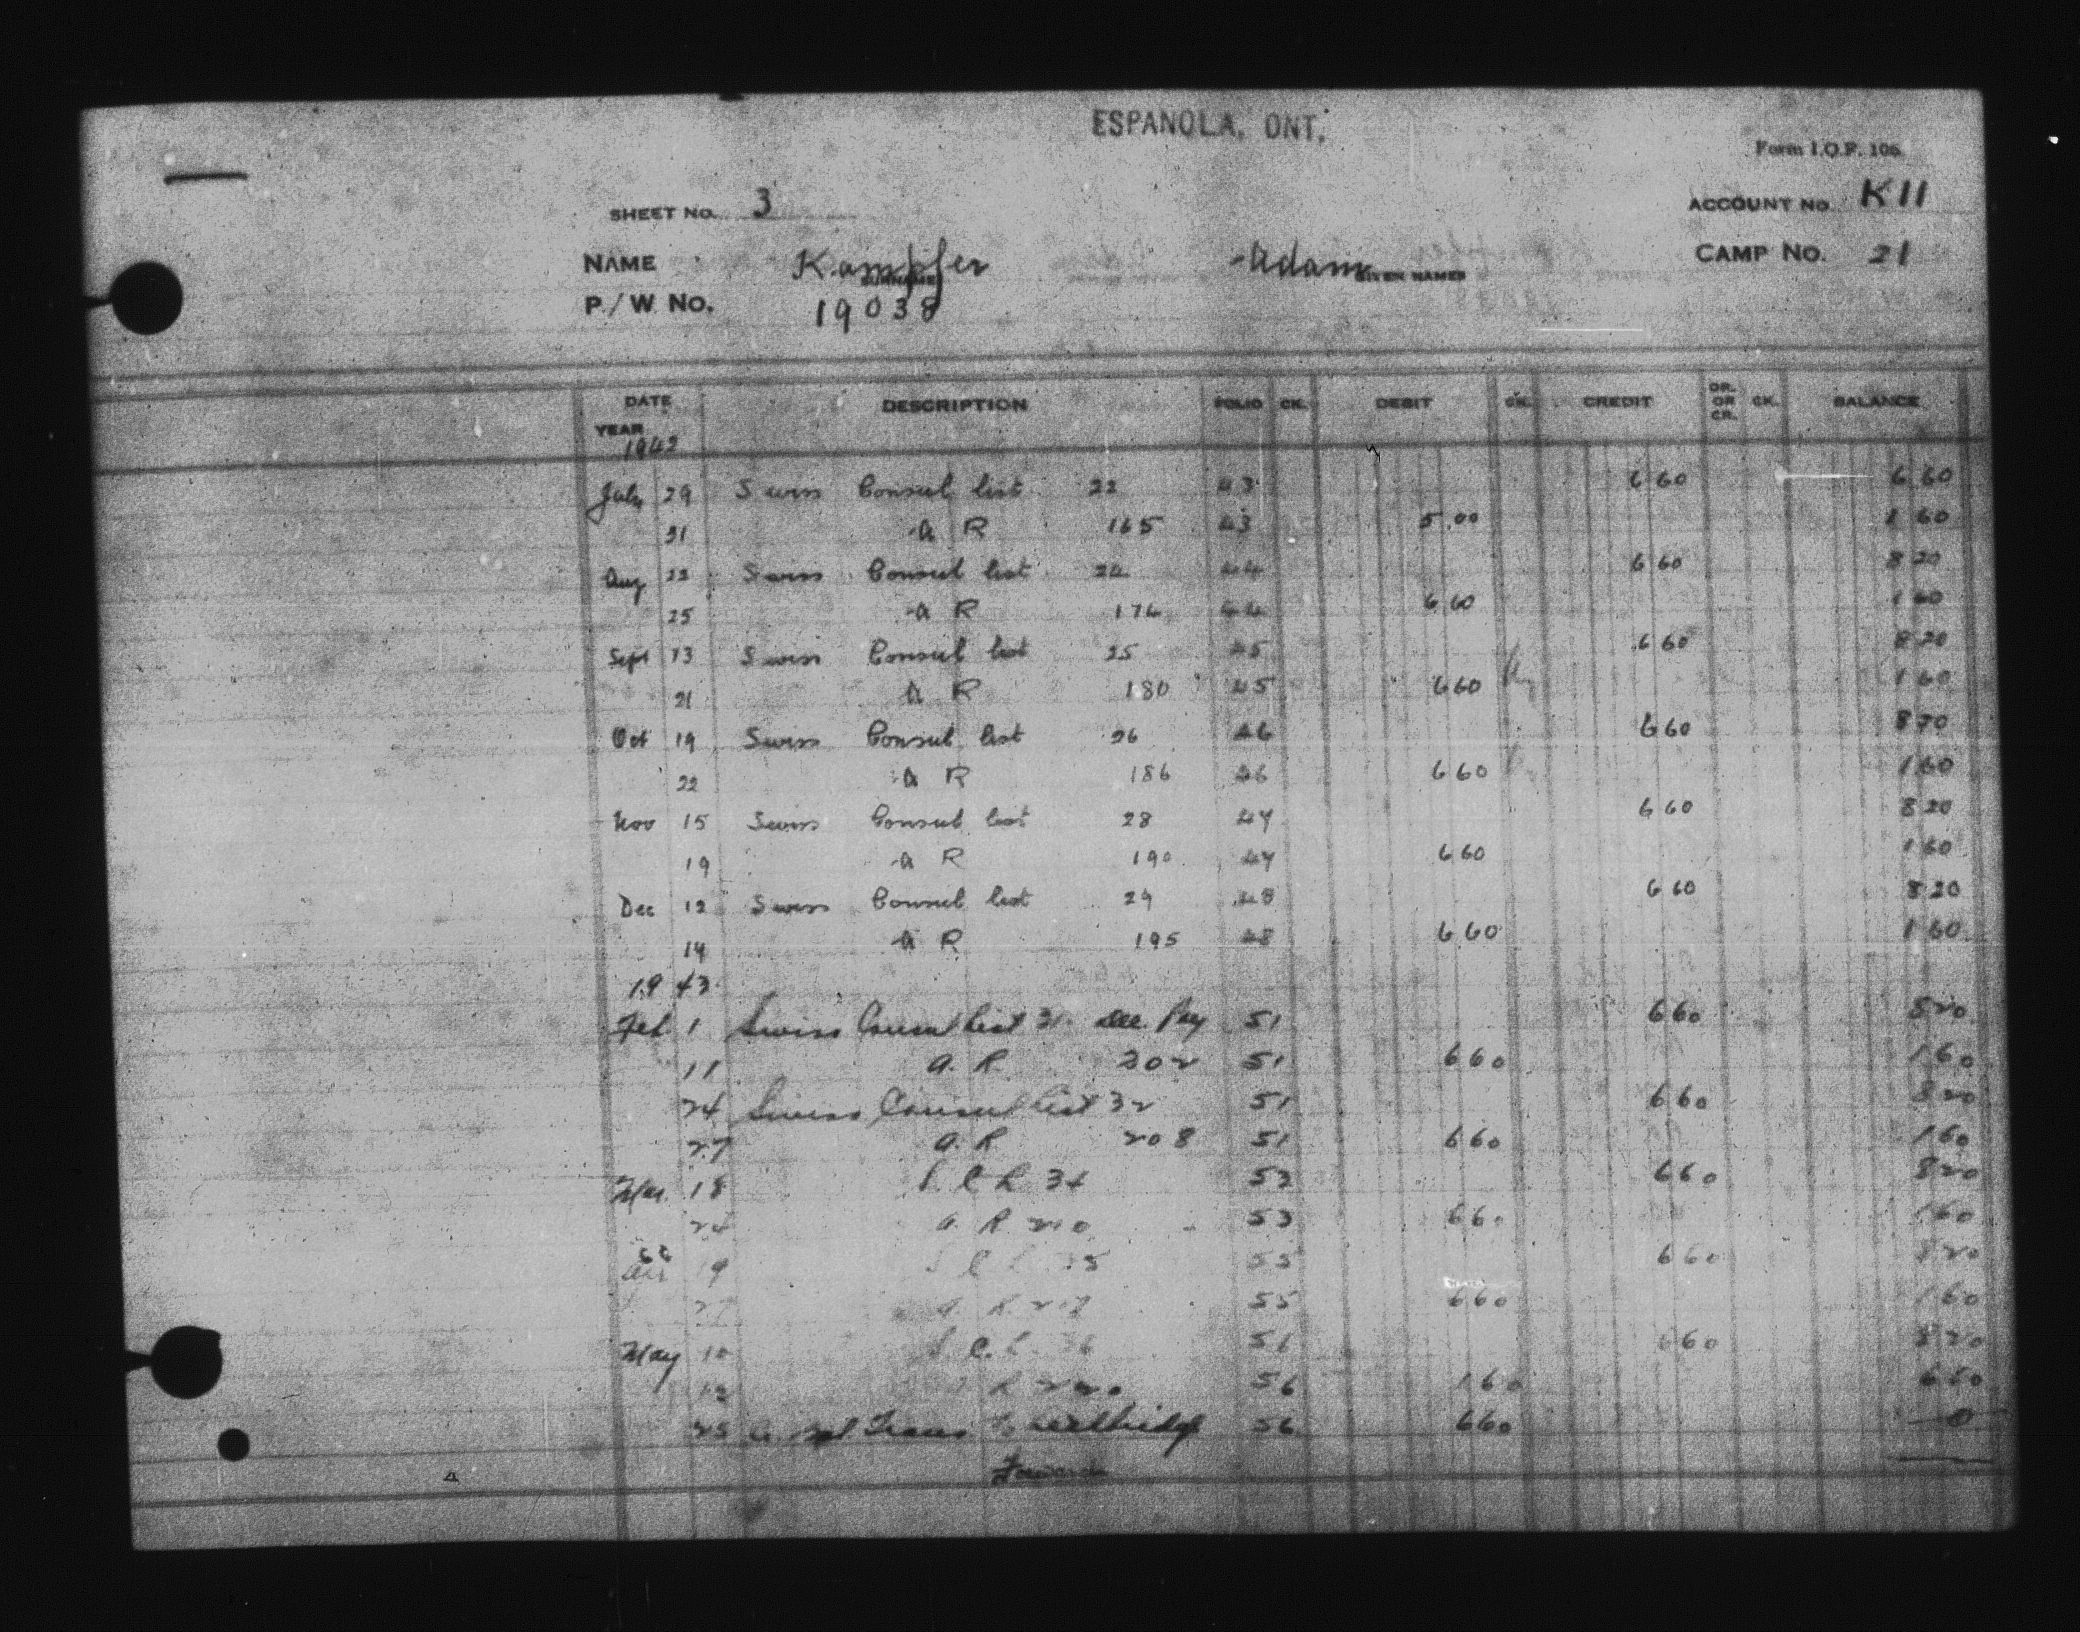 ESPANOLA, ONT.
Form I.O.P. 106
SHEET No. 3
ACCOUNT No K11
NAME Kampfer Adam
SURNAME GIVEN NAMES
CAMP No. 21
P./W. No. 19038
DATE DESCRIPTION FOLIO CK. DEBIT CK. CREDIT DR. OR CR. CK. BALANCE
YEAR 1942
July 29 Swiss Consul list 22 43 6 60 6 60
31 A R 165 43 5.00 1 60
Aug 22 Swiss Consul list 24 44 6 60 8 20
25 A R 174 44 6 60 1 60
Sept 13 Swiss Consul list 25 45 6 60 8 20
21 A R 180 45 6 60 1 60
Oct 19 Swiss Consul list 26 46 6 60 8 20
22 A R 186 46 6 60 1 60
Nov 15 Swiss Consul list 28 47 6 60 8 20
19 A R 190 47 6 60 1 60
Dec 12 Swiss Consul list 29 48 6 60 8 20
14 A R 195 48 6 60 1 60
1943
Feb 1 Swiss Consul list 31 Dec. Pay 51 6 60 8 20
11 A. R. 202 51 6 60 1 60
24 Swiss Consul list 32 51 6 60 8 20
27 A. R. 208 51 6 60 1 60
Mar. 18 S. C. L. 34 53 6 60 8 20
24 A. R. 210 53 6 60 1 60
19 S C L 35 55 6 60 8 20
27 A. R. 217 55 6 60 1 60
May 10 S. C. L. 36 56 6 60 8 20
12 A R 220 56 1 60 6 60
25 Trans to Lethbridge 56 6 60 0
Forward